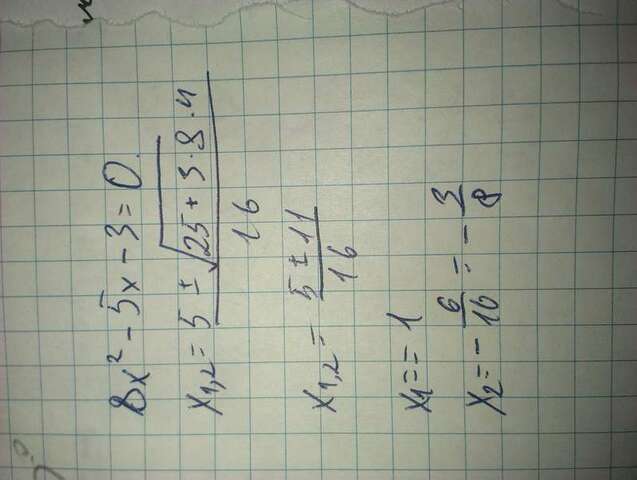 8x² - 5x - 3 = 0
x₁,₂ = (5 ± √(25 + 3·8·4)) / 16
x₁,₂ = (5 ± 11) / 16
x₁ == 1
x₂ = - 6/16 = - 3/8